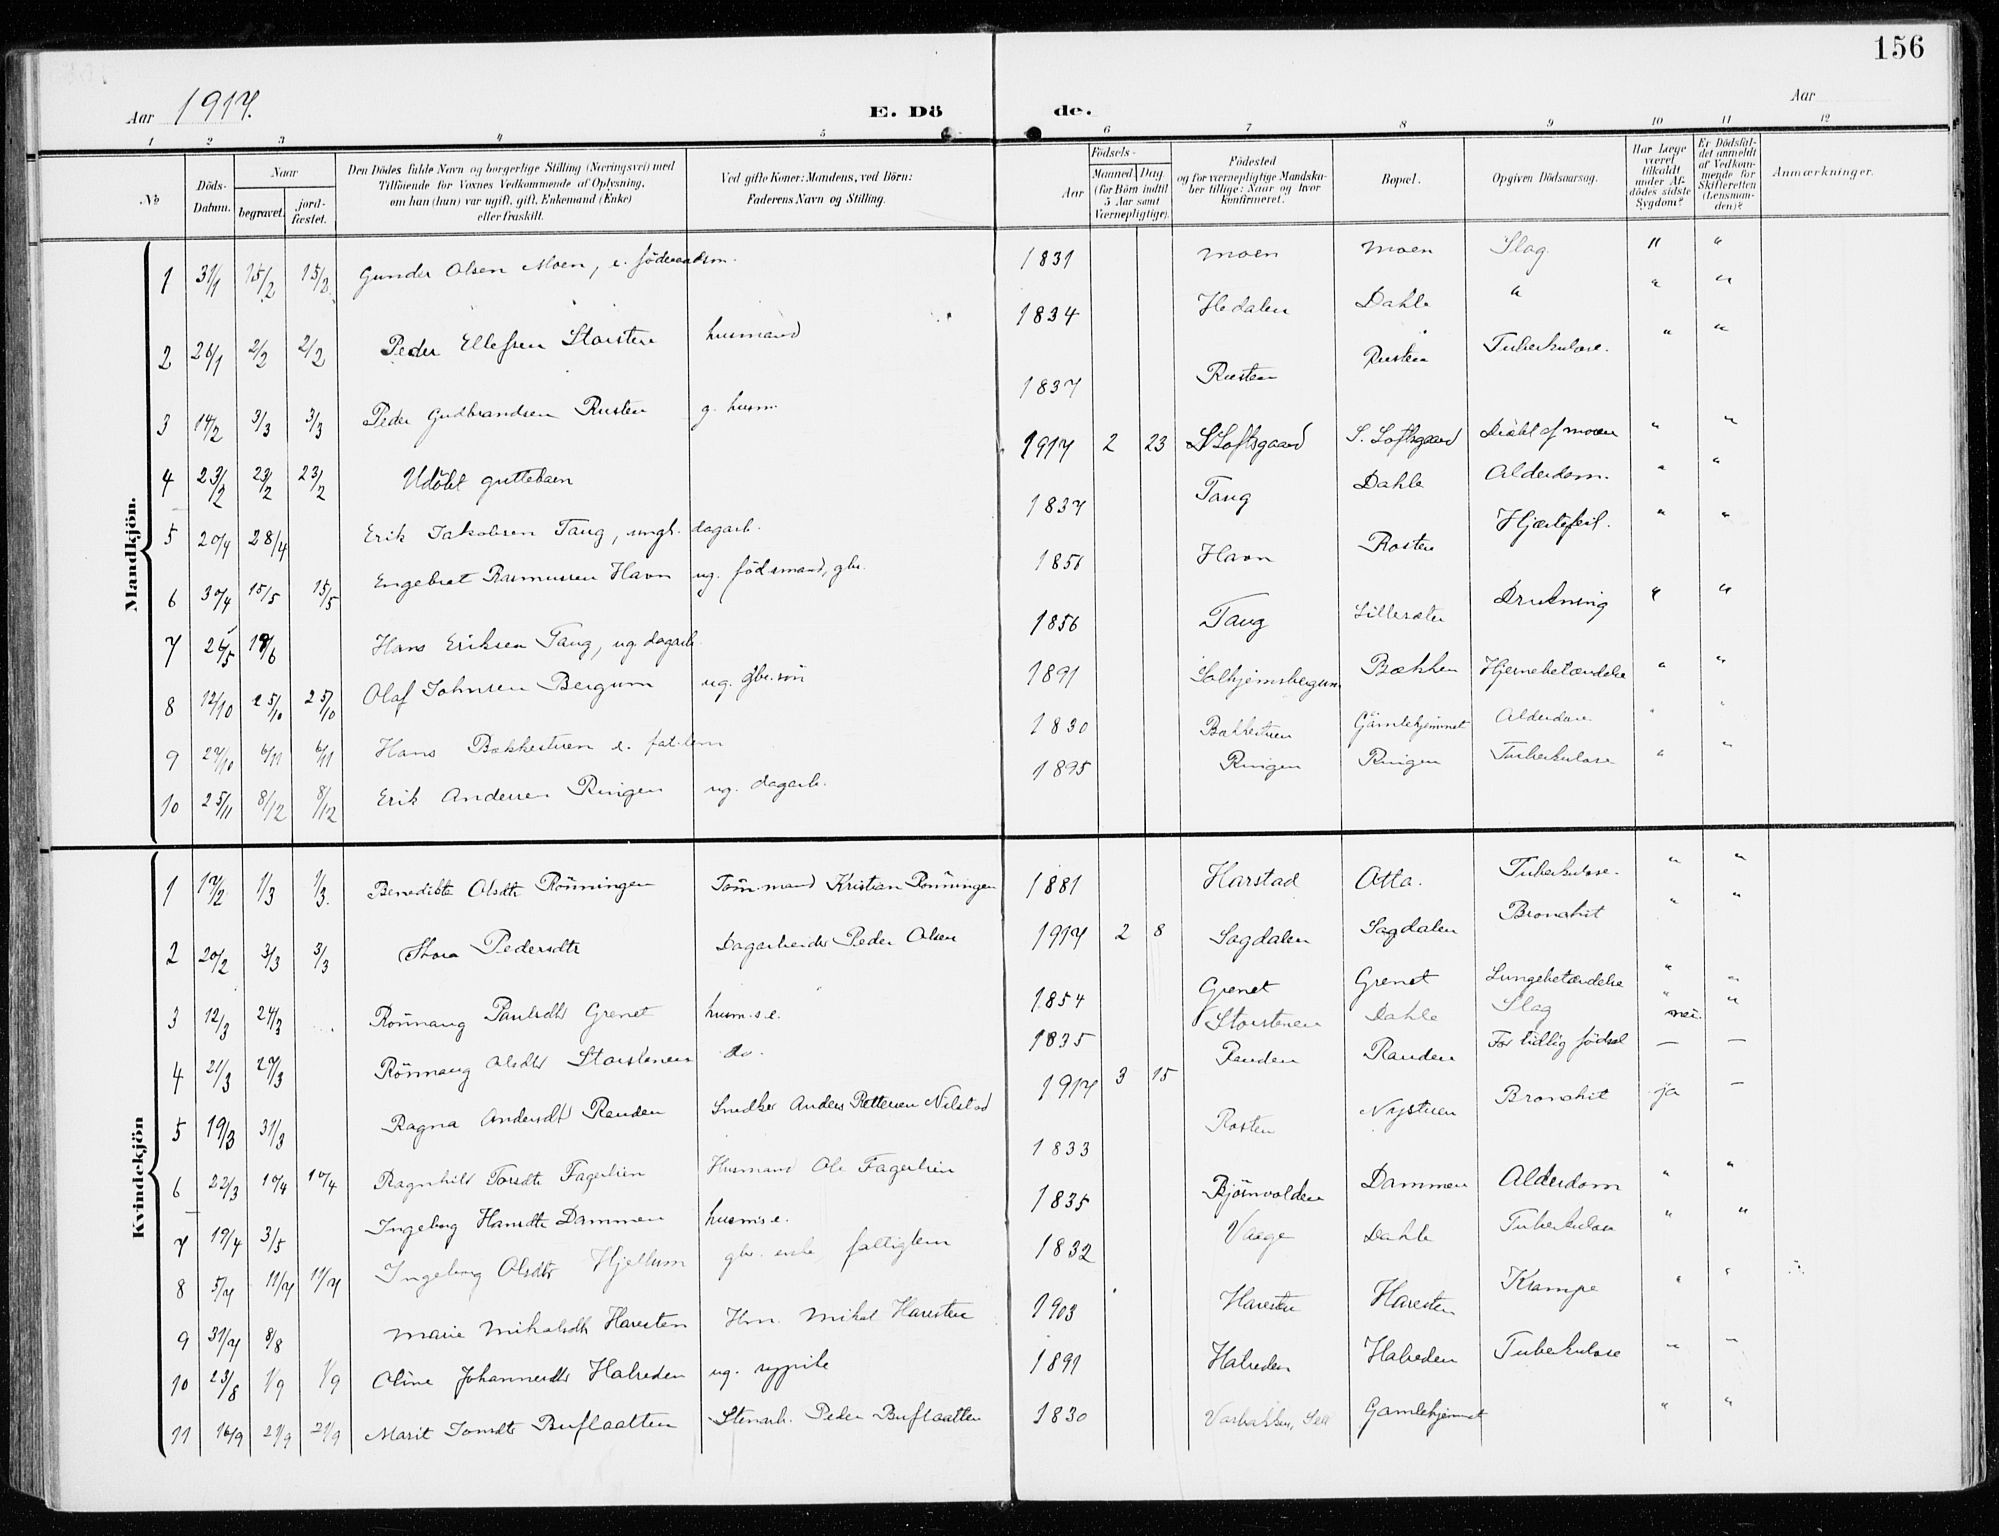 156
Aar 1917. E. Dö de. Aar
1 2 3 4 5 6 7 8 9 10 11 12
No
Döds-Datum.
Naar
begravet.
jordfæstet.
Den Dödes fulde Navn og borgerlige Stilling (Næringsvei) med Tilföiende for Voxnes Vedkommende af Oplysning, om han (hun) var ugift, gift, Enkemand (Enke) eller fraskilt.
Ved gifte Koner: Mandens, ved Börn: Faderens Navn og Stilling.
Födsels-
Aar
Maaned Dag
(for Börn indtil 5 Aar samt Værnepligtige).
Födested og for værnepligtige Mandskaber tillige: Naar og hvor konfirmeret.
Bopæl.
Opgiven Dödsaarsag.
Har Læge været tilkaldt under Afdödes sidste Sygdom?
Er Dödsfaldet anmeldt af Vedkommende for Skifteretten (Lensmanden)?
Anmærkninger.
Mandkjön.
1 31/1 15/2 15/2 Gunder Olsen Moen, e. föderaadsm. 1831 Moen Moen Slag " "
2 26/1 2/2 2/2 Peder Ellefsen Storsten husmand 1834 Hedalen Dahle " " "
3 14/2 3/3 3/3 Peder Gudbrandsen Rusten g. husm. 1837 Rusten Rusten Tuberkulose. " "
4 23/2 23/2 23/2 Udöbt guttebarn 1917 2 23 S. Loftsgaard S. Loftsgaard Dræbt af moren " "
5 20/4 28/4 Erik Jakobsen Taug, ungk. dagarb. 1837 Taug Dahle Alderdom. " "
6 30/4 15/5 15/5 Engebret Rasmussen Havn ug. födsmand, gbr. 1856 Havn Rosten Hjertefeil. " "
7 26/5 19/6 Hans Eriksen Taug, ug. dagarb. 1856 Taug Lillesæter Drukning " "
8 12/10 25/10 25/10 Olaf Johnsen Bergum ug. gbr. sön 1891 Solhjemsbergum Bækken Hjernebetændelse " "
9 27/10 6/11 6/11 Hans Bækkestuen e. fat. lem 1830 Bækkestuen Gamlehjemmet " "
10 25/11 8/12 8/12 Erik Andersen Ringen ug. dagarb. 1895 Ringen Ringen Tuberkulose " "
Kvindekjön
1 17/2 1/3 1/3. Benedikte Olsdtr Rönningen Töm. mand Kristian Rönningen 1881 Harstad Otta. Tuberkulose. " "
2 20/2 3/3 3/3 Thora Pedersdtr Dagarbeider Peder Olsen 1917 2 8 Sagdalen Sagdalen Bronchit " "
3 12/3 24/3 Rönnaug Paulsdtr Grenet husm.s e. 1854 Grenet Grenet Lungebetændelse " "
4 21/3 27/3 Rönnaug Olsdtr Storstenen do. 1835 Storstenen Dahle Slag " nei. "
5 19/3 31/3 Ragna Andersdtr Randen Snedker Anders Pettersen Nilstad 1917 3 15 Randen Randen For tidlig födsel — —
6 22/3 10/4 10/4 Ragnhild Torsdtr Fagerlien Husmand Ole Fagerlien 1833 Rosten Nystuen Bronchit ja —
7 19/4 3/5 Ingeborg Hansdtr Dammen husm.s e. 1835 Björnvolden Dammen Alderdom " "
8 5/7 11/7 11/7 Ingeborg Olsdtr Hjeltum gbr. enke, fattiglem 1832 Vaage Dahle Tuberkulose " "
9 31/7 8/8 Marie Mikalsdtr Haresten Hm. Mikal Haresten 1903 Haresten Haresten Krampe " "
10 23/8 1/9 1/9 Oline Johannesdtr Halreden ug. sypike 1891 Halreden Halreden Tuberkulose " "
11 16/9 21/9 21/9 Marit Tomsdtr Buflaatten Stenarb. Peder Buflaatten 1830 Gamlehjemmet " "